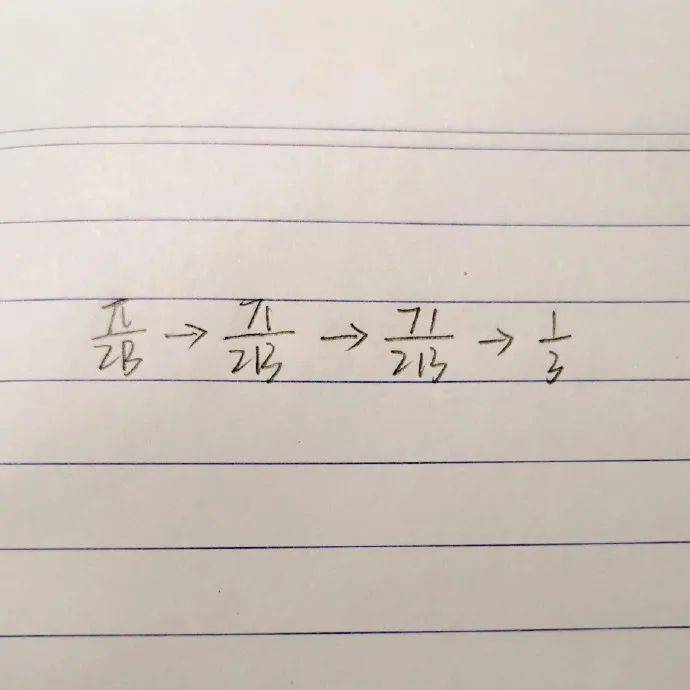 π/2B → 71/213 → 71/213 → 1/3